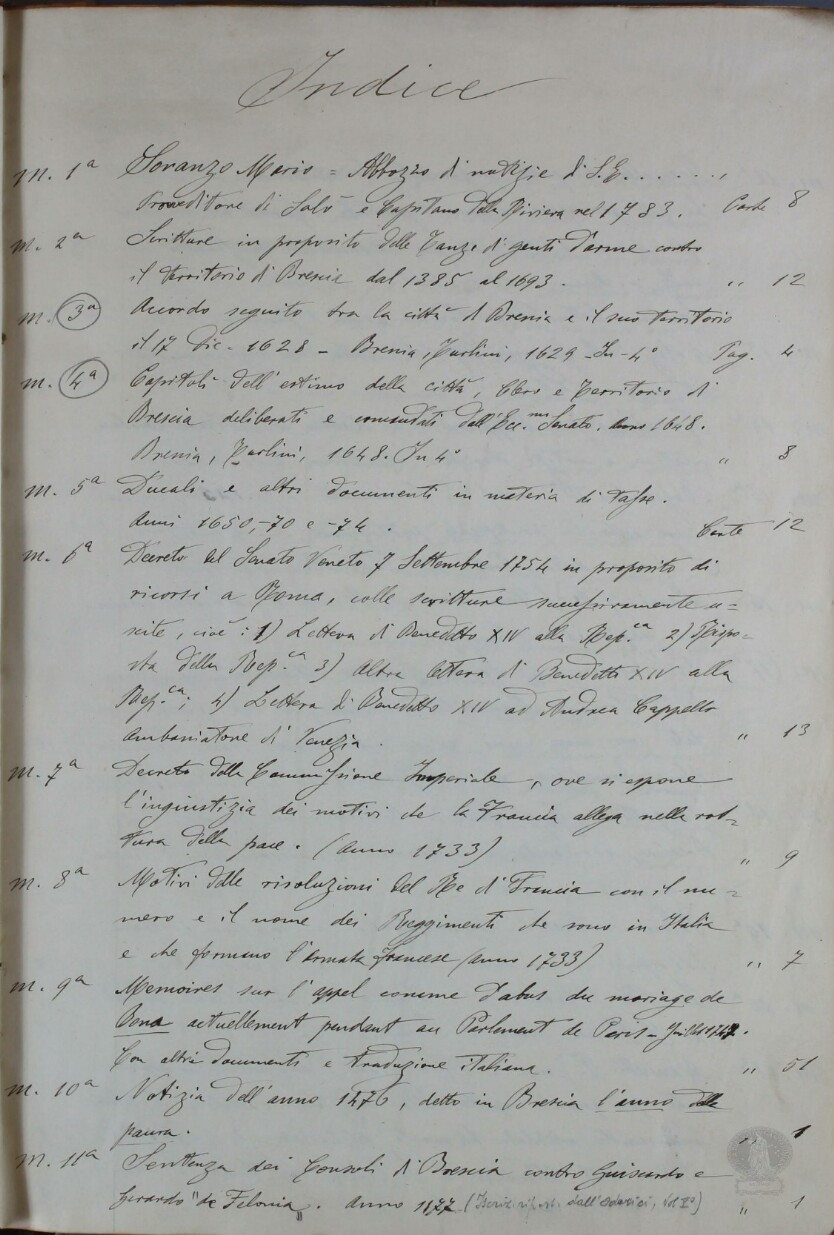 Indice
m. 1a Soranzo Mario = Abbozzo di notizie di S.E. . . . . . ,
Proveditore di Salò e Capitano della Riviera nel 1783. Carte 8
m. 2a Scritture in proposito delle Tanze di genti d'arme contro
il territorio di Brescia dal 1385 al 1693. " 12
m. 3a Accordo seguito tra la città di Brescia e il suo territorio
il 17 Dic. 1628 - Brescia, Turlini, 1629 - In-4° Pag. 4
m. 4a Capitoli dell'estimo della città, Clero e Territorio di
Brescia deliberati e comandati dall'Ecc.mo Senato. Anno 1648.
Brescia, Turlini, 1648. In 4° " 8
m. 5a Ducali e altri documenti in materia di tasse.
Anni 1650,-70 e -74. Carte 12
m. 6a Decreto del Senato Veneto 7 Settembre 1754 in proposito di
ricorsi a Roma, colle scritture successivamente u=
scite, cioè: 1) Lettera di Benedetto XIV alla Rep.ca 2) Rispo-
sta della Rep.ca 3) Altra lettera di Benedetto XIV alla
Rep.ca; 4) Lettera di Benedetto XIV ad Andrea Cappello
ambasciatore di Venezia. " 13
m. 7a Decreto della Commissione Imperiale, ove si espone
l'ingiustizia dei motivi che la Francia allega nella rot=
tura della pace. (anno 1733) " 9
m. 8a Motivi delle risoluzioni del Re di Francia con il nu=
mero e il nome dei Reggimenti che sono in Italia
e che formano l'armata francese (anno 1733) " 7
m. 9a Memoires sur l'appel comme d'abus du mariage de
Bona actuellement pendant au Parlement de Paris - Juillet 1747.
Con altri documenti e traduzione italiana. " 51
m. 10a Notizia dell'anno 1476, detto in Brescia l'anno della
paura. " 1
m. 11a Sentenza dei Consoli di Brescia contro Guiscardo e
Gerardo "de Felonia". Anno 1177 (Iscriz. riport. dall'Odorici, Vol V°) " 1